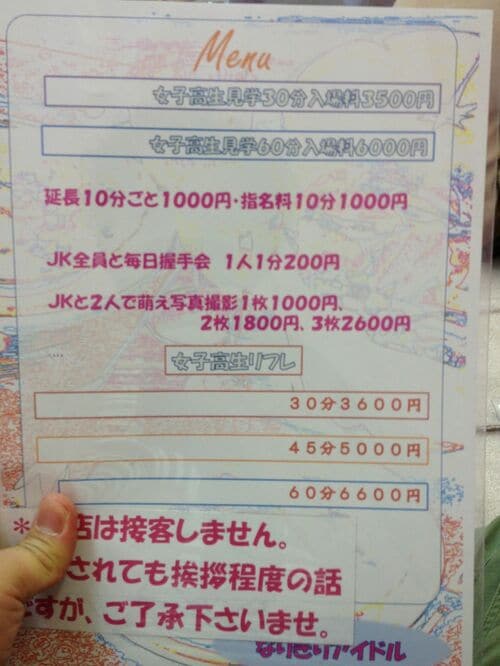 Menu
女子高生見学30分入場料3500円
女子高生見学60分入場料6000円
延長10分ごと1000円・指名料10分1000円
JK全員と毎日握手会 1人1分200円
JKと2人で萌え写真撮影1枚1000円、
2枚1800円、3枚2600円
....
女子高生リフレ
30分3600円
45分5000円
60分6600円
＊ 店は接客しません。
されても挨拶程度の話
ですが、ご了承下さいませ。
なりきりアイドル